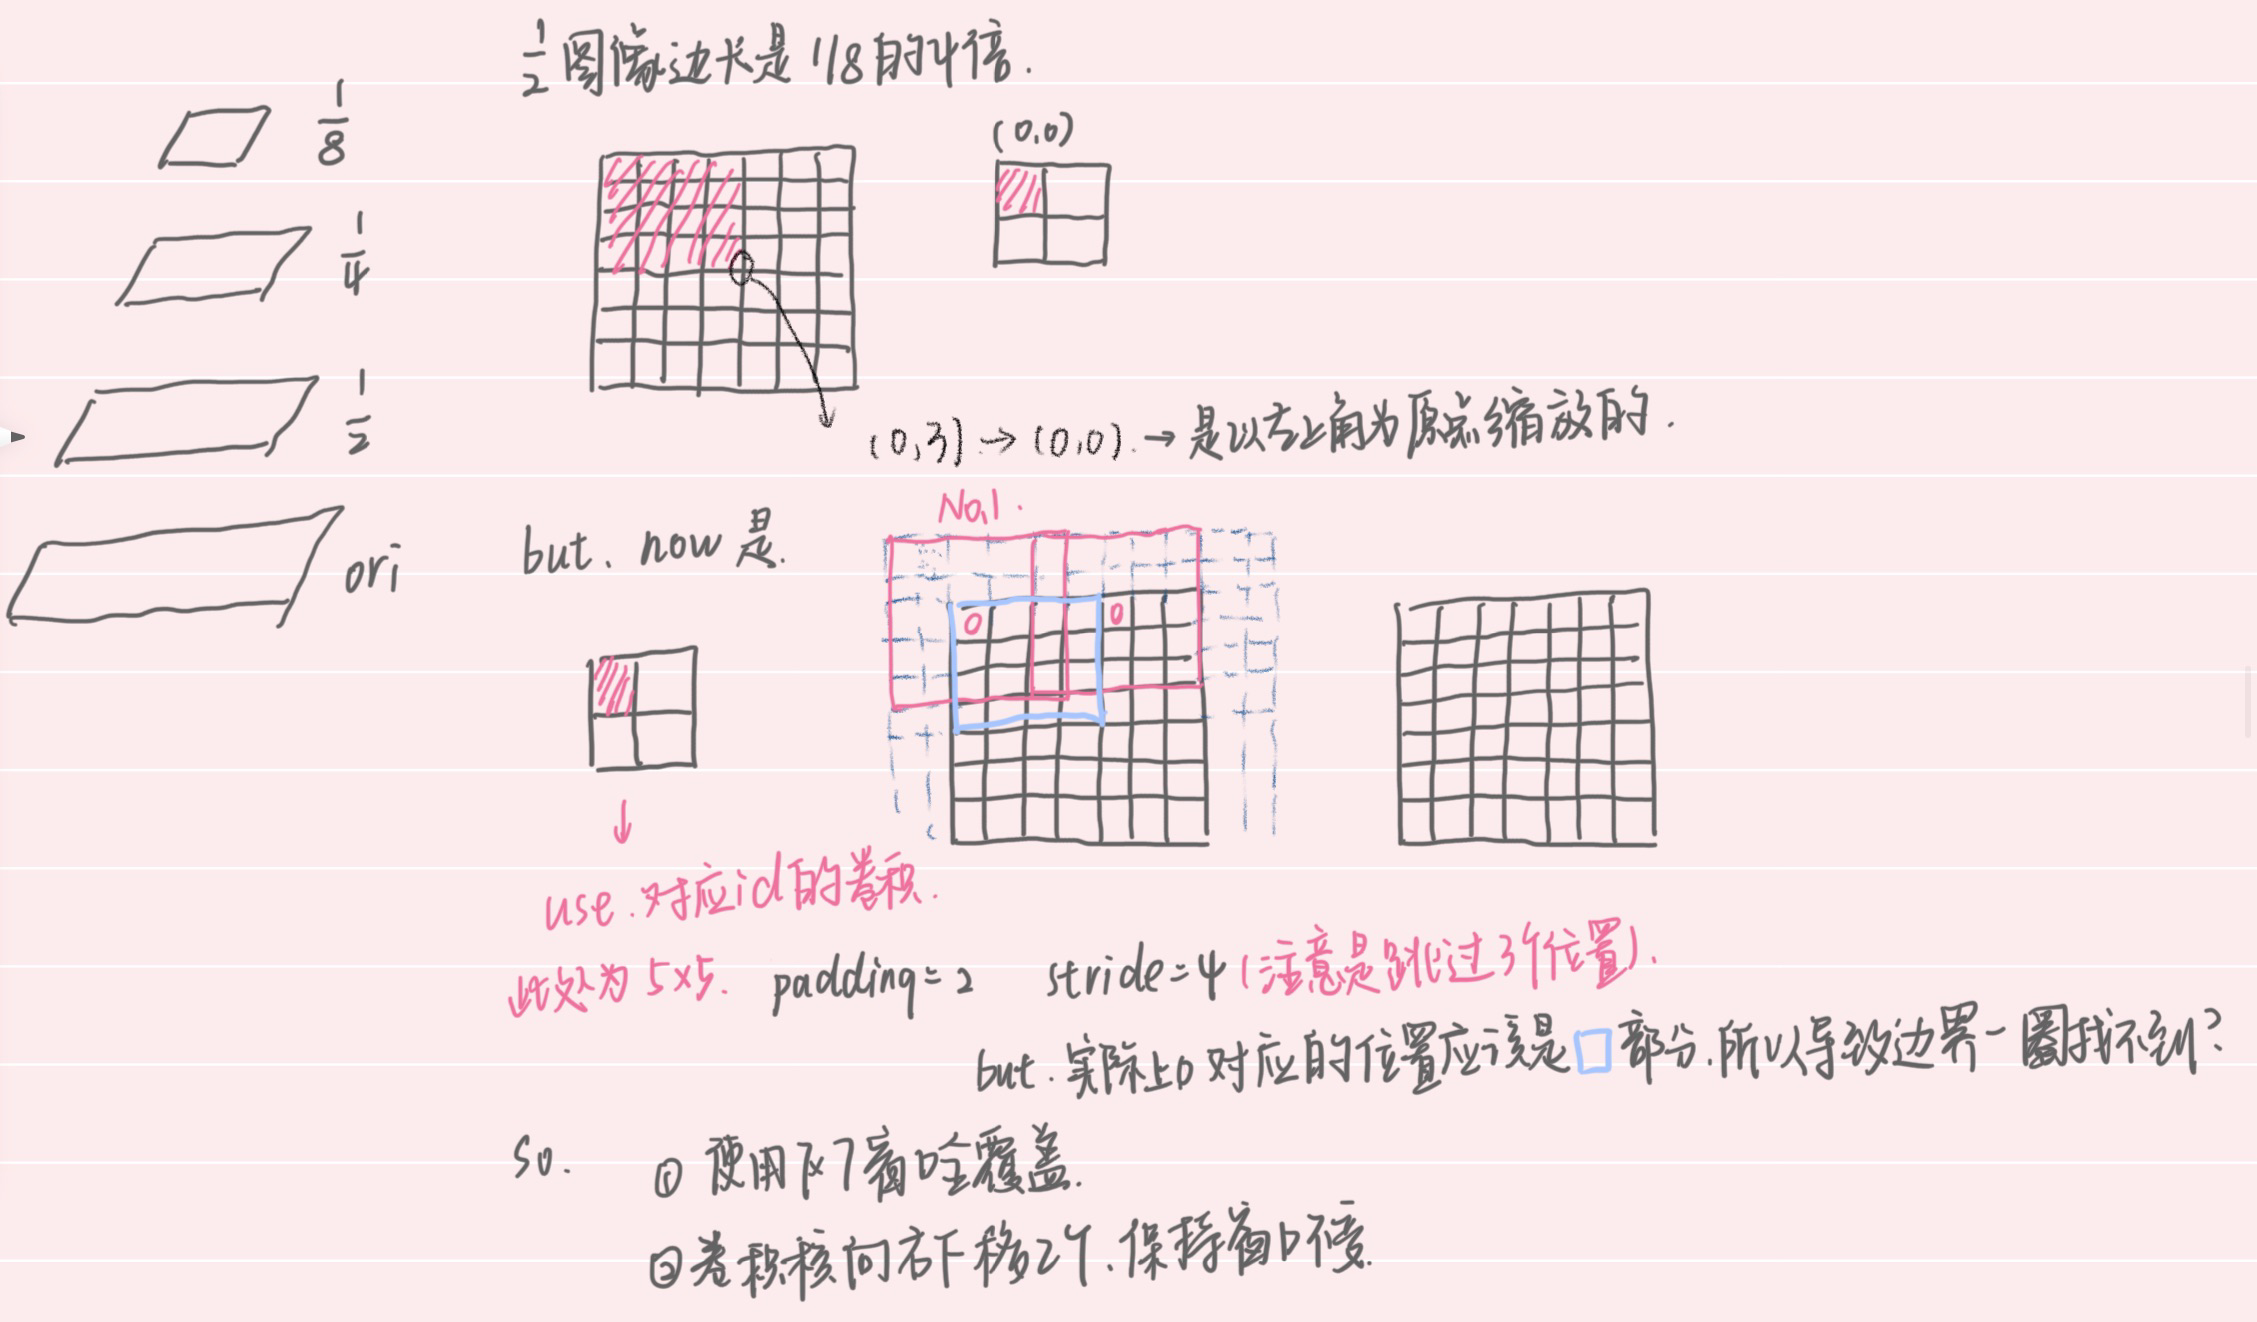 1/2 图像边长是 1/8 的4倍.
1/8
(0,0)
1/4
1/2
(0,3] → (0,0). → 是以左上角为原点缩放的.
No,1.
but. now 是.
ori
0 0
use. 对应id的卷积.
此处为 5×5. padding=2 stride=4 (注意是跳过3个位置).
but. 实际上0对应的位置应该是 部分.所以导致边界一圈找不到?
so. ① 使用7×7窗口全覆盖.
②卷积核向右下移2个,保持窗口不变.